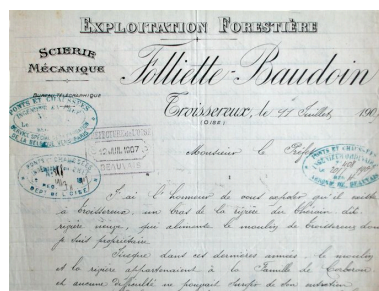 EXPLOITATION FORESTIÈRE
SCIERIE
MÉCANIQUE
Folliette-Baudoin
Troissereux, le 11 Juillet 190
(OISE)
PONTS ET CHAUSSÉES
12 JUIL 1907
BEAUVAIS
PONTS ET CHAUSSÉES
DEPT DE L'OISE
Monsieur le Préfet
J'ai l'honneur de vous exposer qu'il existe
à Troissereux, un bras de la rivière du Thérain dit
rivière neuve, qui alimente le moulin de Troissereux dont
je suis propriétaire.
Jusque dans ces dernières années, le moulin
et la rivière appartenaient à la famille de Corberon
et aucune difficulté ne pouvait surgir de son entretien